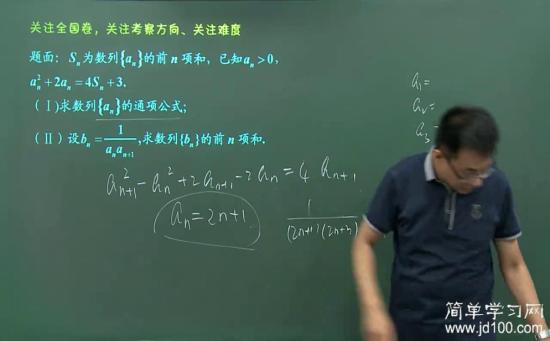 关注全国卷，关注考察方向、关注难度
题面：Sₙ为数列{aₙ}的前n项和，已知aₙ>0，
aₙ²+2aₙ=4Sₙ+3.
(Ⅰ)求数列{aₙ}的通项公式；
(Ⅱ)设bₙ=1/(aₙaₙ₊₁),求数列{bₙ}的前n项和.
a²ₙ₊₁-aₙ²+2aₙ₊₁-2aₙ=4aₙ₊₁
aₙ=2n+1
1/((2n+1)(2n+3))
a₁=
a₂=
a₃=
简单学习网
www.jd100.com